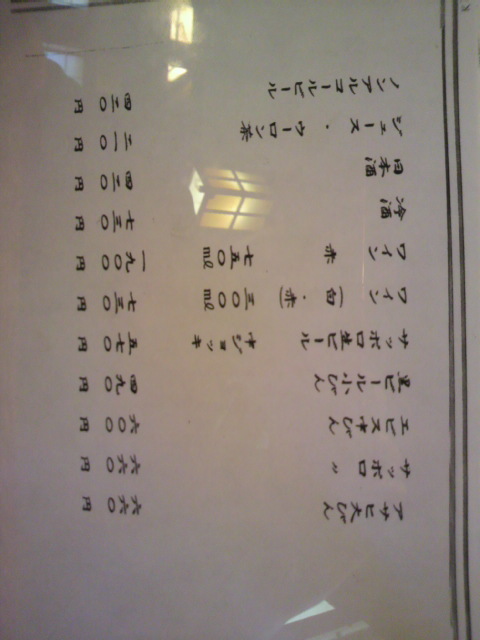 アサヒ大びん 六六〇円
サッポロ 〃 六六〇円
エビス中びん 六〇〇円
黒ビール小びん 四九〇円
サッポロ生ビール 中ジョッキ 五七〇円
ワイン(白・赤) 三〇〇ml 七三〇円
ワイン 赤 七五〇ml 一九〇〇円
冷酒 七三〇円
日本酒 四三〇円
ジュース・ウーロン茶 二一〇円
ノンアルコールビール 四三〇円